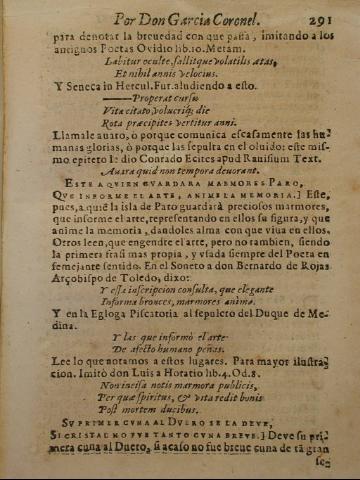 Por Don Garcia Coronel. 291
para denotar la breuedad con que passa, imitando a los
antiguos Poetas Ouidio lib.10. Metam.
Labitur occulte, fallitque volatilis ætas,
Et nihil annis velocius.
Y Seneca in Hercul. Fur. aludiendo a esto.
——Properat cursu
Vita citato, volucriq; die
Rota præcipitis vertitur anni.
Llamale auaro, ò porque comunica escasamente las hu-
manas glorias, ò porque las sepulta en el oluido: este mis-
mo epiteto le dio Conrado Ecites apud Rauisium Text.
Auara quid non tempora deuorant.
ESTE A QVIEN GVARDARA MARMORES PARO,
QVE INFORME EL ARTE, ANIME LA MEMORIA.] Este,
pues, a quiē la isla de Pato guardarà preciosos marmores,
que informe el arte, representando en ellos su figura, y que
anime la memoria, dandoles alma con que viua en ellos.
Otros leen, que engendre el arte, pero no tambien, siendo
la primera frasi mas propia, y vsada siempre del Poeta en
semejante sentido. En el Soneto a don Bernardo de Rojas
Arçobispo de Toledo, dixo:
Y esta inscripcion consulta, que elegante
Informa bronces, marmores anima.
Y en la Egloga Piscatoria al sepulcro del Duque de Me-
dina.
Y las que informò el arte
De afecto humano peñas.
Lee lo que notamos a estos lugares. Para mayor ilustra-
cion. Imitò don Luis a Horatio lib.4. Od.8.
Non incisa notis marmora publicis,
Per quæ spiritus, & vita redit bonis
Post mortem ducibus.
SV PRIMER CVNA AL DVERO SE LA DEVE,
SI CRISTAL NO FVE TANTO CVNA BREVE.] Deue su pri-
mera cuna al Duero, si acaso no fue breue cuna de tã gran
se-